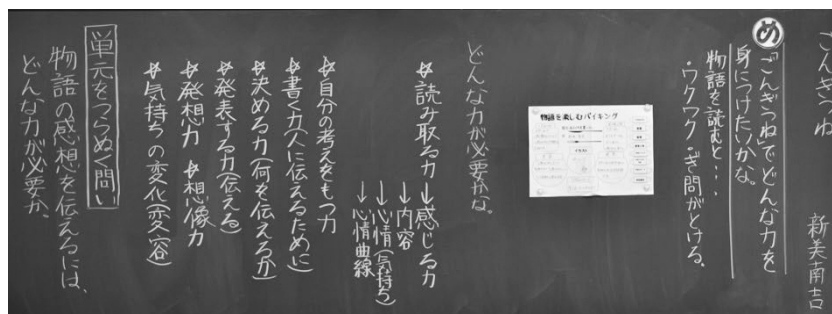 ごんぎつね
新美南吉
め
「ごんぎつね」でどんな力を
身につけたいかな。
物語を読むと・・・
・ワクワク・ぎ問がとける。
物語を楽しむバイキング
どんな力が必要かな。
☆読み取る力→感じる力
→内容
→心情(気持ち)
→心情曲線
☆自分の考えをもつ力
☆書く力(人に伝えるために)
☆決める力(何を伝えるか)
☆発表する力(伝える)
☆発想力 ☆想像力
☆気持ちの変化(変容)
単元をつらぬく問い
物語の感想を伝えるには、
どんな力が必要か。